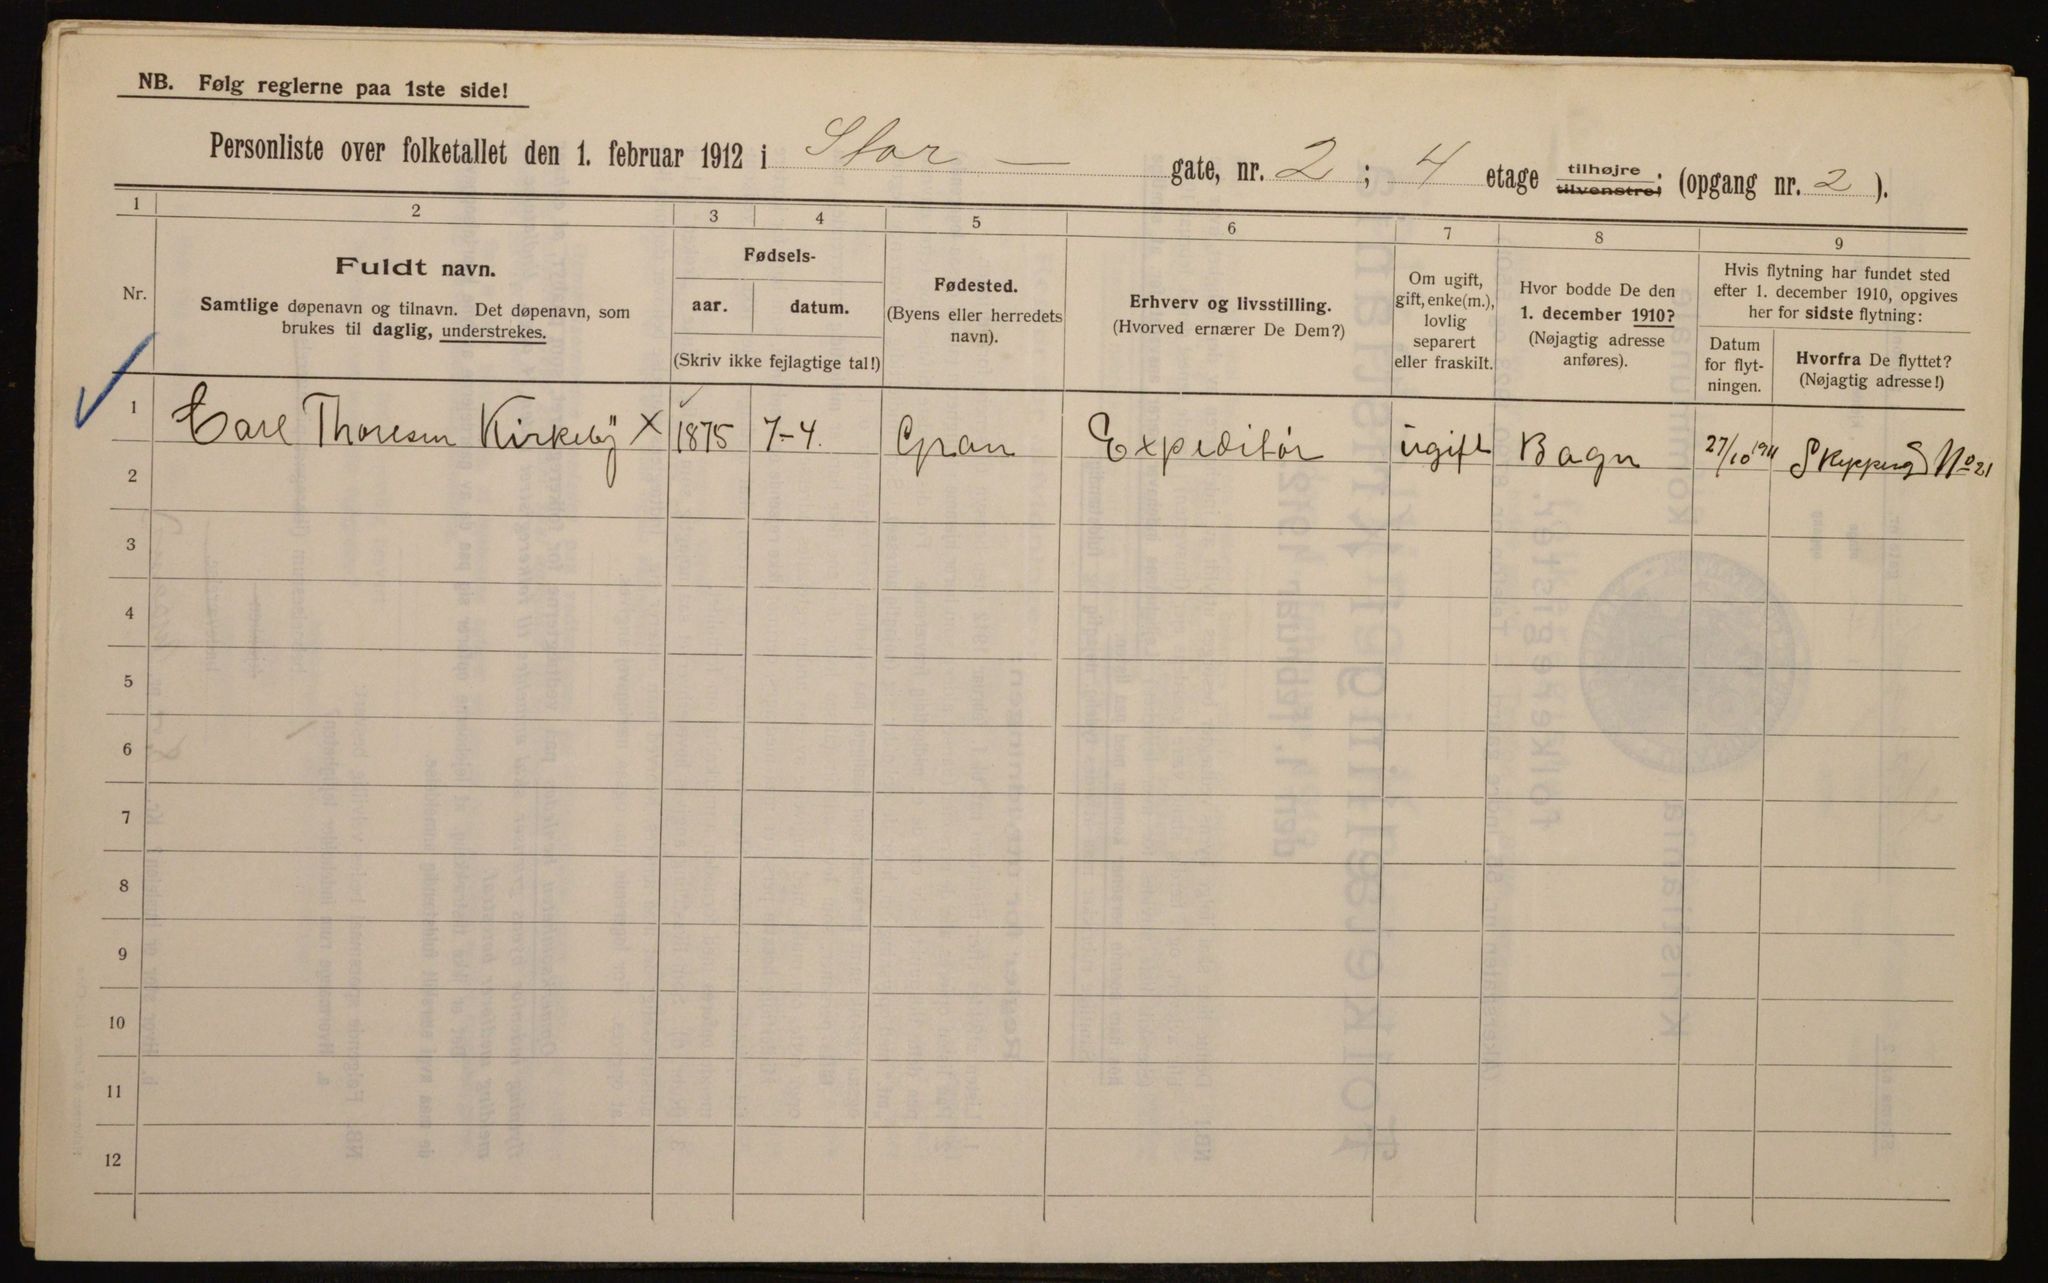 NB. Følg reglerne paa 1ste side!
Personliste over folketallet den 1. februar 1912 i Stor — gate, nr. 2 ; 4 etage tilhøjre, tilvenstre; (opgang nr. 2 ).
1 2 3 4 5 6 7 8 9
Nr.
Fuldt navn.
Samtlige døpenavn og tilnavn. Det døpenavn, som
brukes til daglig, understrekes.
Fødsels-
aar. datum.
(Skriv ikke fejlagtige tal!)
Fødested.
(Byens eller herredets
navn).
Erhverv og livsstilling.
(Hvorved ernærer De Dem?)
Om ugift,
gift, enke(m.),
lovlig
separert
eller fraskilt.
Hvor bodde De den
1. december 1910?
(Nøjagtig adresse
anføres).
Hvis flytning har fundet sted
efter 1. december 1910, opgives
her for sidste flytning:
Datum
for flyt-
ningen.
Hvorfra De flyttet?
(Nøjagtig adresse!)
1 Carl Thoresen Kirkeby X 1875 7-4. Gran Expeditør ugift Bagn 27/10 1911 Skipperg No 21
2
3
4
5
6
7
8
9
10
11
12